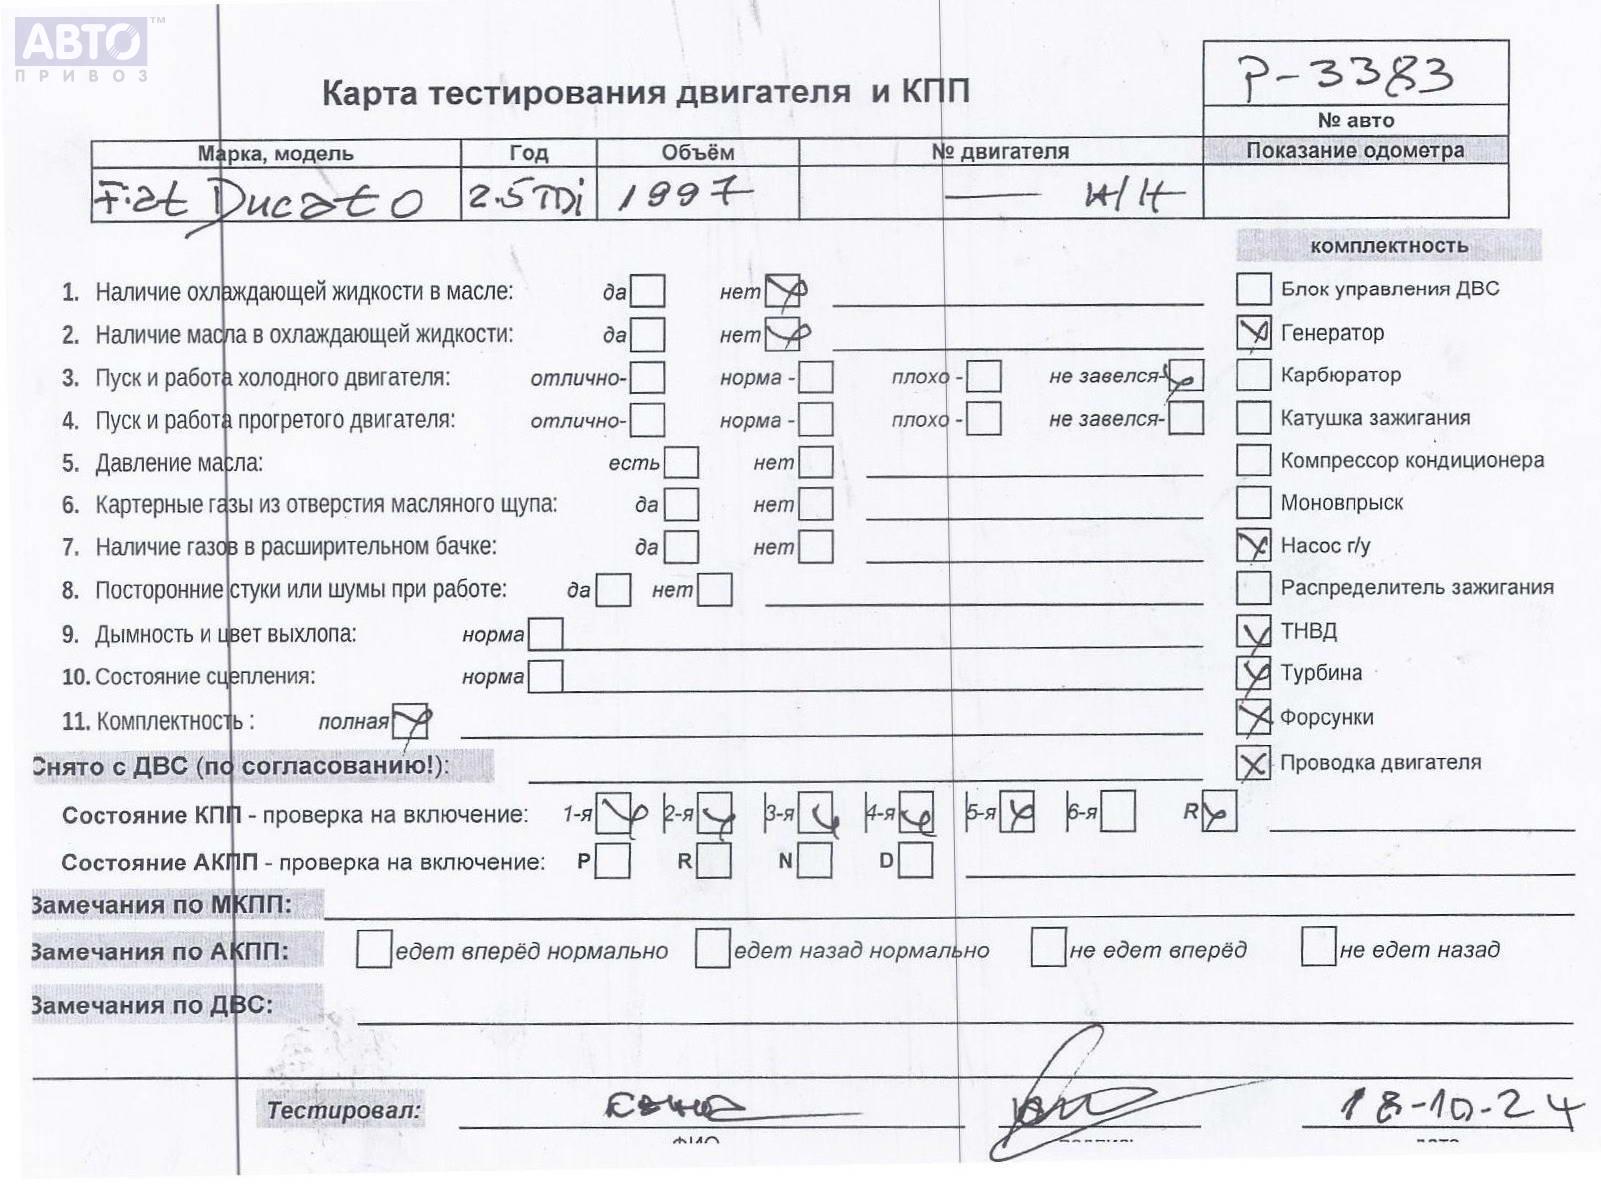 АВТО™
ПРИВОЗ
P-3383
Карта тестирования двигателя и КПП
№ авто
Марка, модель Год Объём № двигателя Показание одометра
Fiat Ducato 2.5 TDi 1997 — н/н
комплектность
1. Наличие охлаждающей жидкости в масле: да нет
Блок управления ДВС
2. Наличие масла в охлаждающей жидкости: да нет
Генератор
3. Пуск и работа холодного двигателя: отлично- норма - плохо - не завелся-
Карбюратор
4. Пуск и работа прогретого двигателя: отлично- норма - плохо - не завелся-
Катушка зажигания
5. Давление масла: есть нет
Компрессор кондиционера
6. Картерные газы из отверстия масляного щупа: да нет
Моновпрыск
7. Наличие газов в расширительном бачке: да нет
Насос г/у
8. Посторонние стуки или шумы при работе: да нет
Распределитель зажигания
9. Дымность и цвет выхлопа: норма
ТНВД
10. Состояние сцепления: норма
Турбина
11. Комплектность : полная
Форсунки
Снято с ДВС (по согласованию!):
Проводка двигателя
Состояние КПП - проверка на включение: 1-я 2-я 3-я 4-я 5-я 6-я R
Состояние АКПП - проверка на включение: P R N D
Замечания по МКПП:
Замечания по АКПП: едет вперёд нормально едет назад нормально не едет вперёд не едет назад
Замечания по ДВС:
Тестировал: 18-10-24
ФИО подпись дата